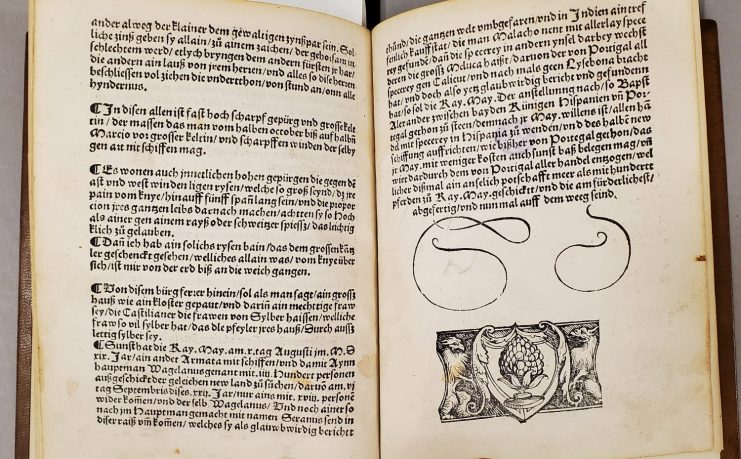 ander al weg der klainer dem gewaltigen zynßpar sein. Sol
liche zinß geben sy allain/zů ainem zaichen/der gehorsam in
schlechtem werd/etlych bryngen dem andern fürsten jr har/
die andern ain lauß von jrem herren/vnd alles so dise herren
beschliessen vol ziehen die vndertthon/von stund an/on alle
hyndernus.
¶In disen allen ist fast hoch scharpf gepürg vnd grosse kel
tin/der massen das man vom halben october biß auf halbñ
Marcio vor grosser keltin/vnd scharpffen winden der selby
gen art nit schiffen mag.
¶Es wonen auch jnnetlichen hohen gepürgen die gegen de
ast vnd west winden ligen rysen/welche so groß seynd/dz jr
pain vom knye/hinauff fünff spañ lang sein/vnd die propor
cion jres gantzen leibs darnach machen/achtten sy so hoch
als ainer gen ainem rayß oder schweitzer spiessz/das leichtig
klich zů gelauben.
¶Dañ ich hab ain solichs rysen bain/das dem grossen kãtz
ler geschenckt gesehen/welliches allain was/vom knye über
sich/ist mir von der erd biß an die weich gangen.
¶Von disem bürg ferrer hinein/sol als man sagt/ain grossz
hauß wie ain kloster gepaut/vnd dariñ ain mechttige fraw
sey/die Castilianer die frawen von Sylber haissen/welliche
fraw so vil sylber hat/das die pfeyler jres hauß/Durch aussz
lettig sylber sey.
¶Sunst hat die Kay. May. am. x. tag Augusti jm. M. D
xix. Jar/ain ander Armata mit schiffen/vnd damit Aynn
hauptman Wagelanus genant mit. iiii. Hundert personen
außgeschickt der geleichen new land zů sůchen/daruõ am. vj
tag Septembris dises. xxij. Jar/nur ains mit. xviij. personẽ
wider komẽn/vnd der selb. Wagelanus/Vnd noch ainer so
nach im Hauptman gemacht mit namen Seranus send in
diser raiß vm̃ komẽn/welches sy als glaubwirdig bericht
chünd/die gantzen welt vmbgefaren/vnd in Indien ain tref
fenlich kauffstat/die man Malacho nent mit allerlay spece
rey gefundẽ/dañ die specerey in andern ynsel darbey wechst
deren die grossz Meluca haißt/daruon der von Portigal all
specerey gen Calicut/vnd nach mals gen Lysebona bracht
hat/vnd doch also yetz glaubwirdig bericht vnd gefunden
hat/so sol die Kay. May. Der anstellung nach/so Bapst
Alexander zwischen bayden Künigen Hispanien vñ Por
tegal gethon zů steen/demnach jr May. willens ist/allen hã
del mit specerey in Hispania zů wenden/vnd des halbẽ new
schiffung auffrichten/wie bißher von Portegal gethon/das
jr May. mit weniger kosten auch sunst baß gelegen mag/vñ
wirt dardurch dem von Portigal aller handel entzogen/wel
licher dißmal ain anselich potschafft meer als mit hunderte
pferden zů Kay. May. geschickt/vnd die am fürderlichest/
abgefertig/vnd nun mal auff dem weg seind.